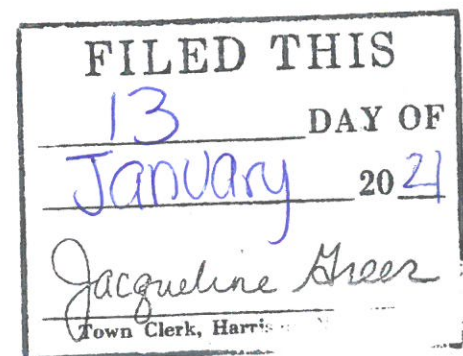 FILED THIS
13 DAY OF
January 2021
Jacqueline Greer
Town Clerk,